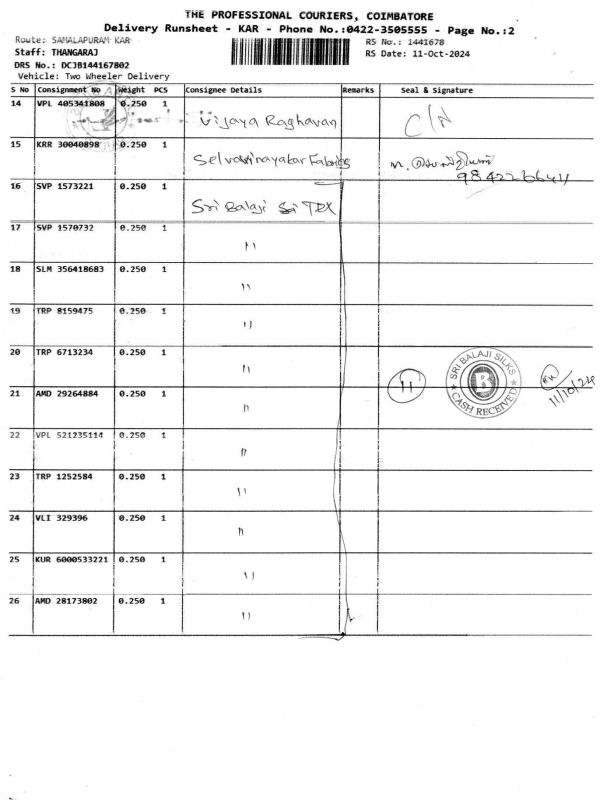 THE PROFESSIONAL COURIERS, COIMBATORE
Delivery Runsheet - KAR - Phone No.:0422-3505555 - Page No.:2
Route: SAMALAPURAM KAR RS No.: 1441678
Staff: THANGARAJ RS Date: 11-Oct-2024
DRS No.: DCJB144167802
Vehicle: Two Wheeler Delivery
S No Consignment No Weight PCS Consignee Details Remarks Seal & Signature
14 VPL 405341808 0.250 1 Vijaya Raghavan C/N
15 KRR 30040898 0.250 1 Selvavinayakar Fabrics
16 SVP 1573221 0.250 1 Sri Balaji TEX
17 SVP 1570732 0.250 1 "
18 SLM 356418683 0.250 1 "
19 TRP 8159475 0.250 1 "
20 TRP 6713234 0.250 1 "
SRI BALAJI SILKS
B
CASH RECEIVED
11
11/10/24
21 AMD 29264884 0.250 1 "
22 VPL 521235114 0.250 1 "
23 TRP 1252584 0.250 1 "
24 VLI 329396 0.250 1 "
25 KUR 6000533221 0.250 1 "
26 AMD 28173802 0.250 1 "